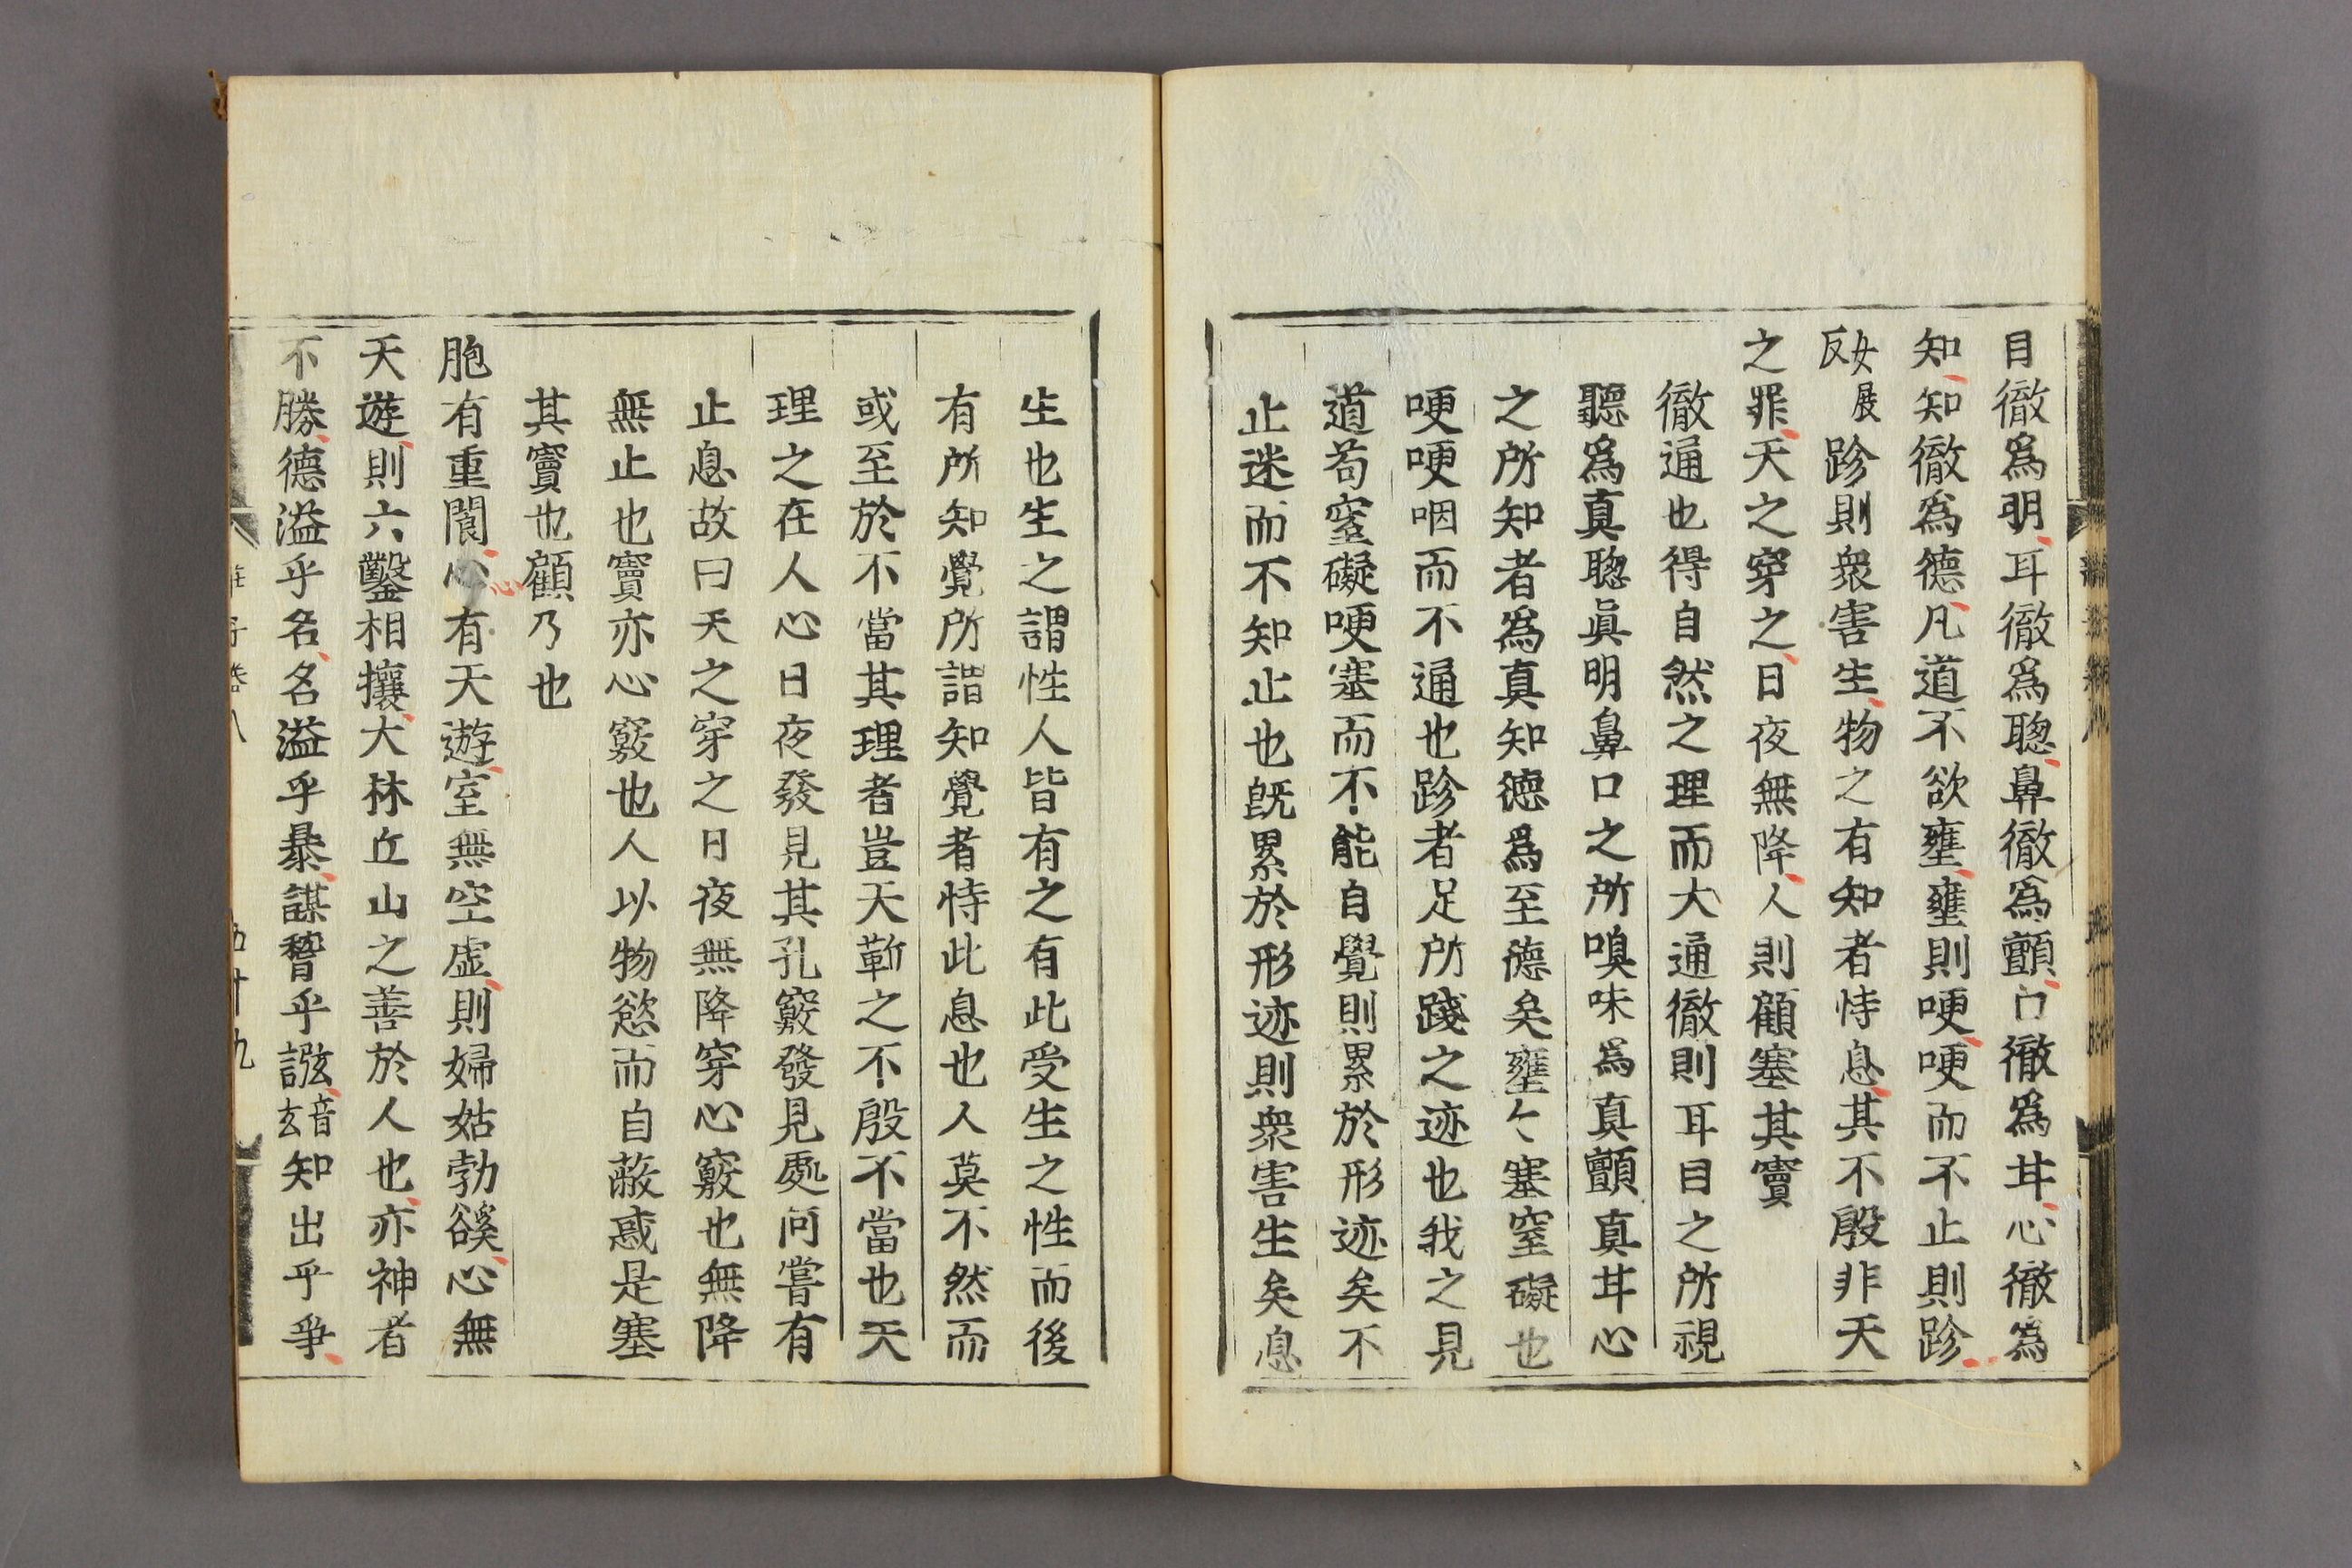 目徹爲明耳徹爲聰鼻徹爲顫口徹爲甘心徹爲
知知徹爲德凡道不欲壅壅則哽哽而不止則跈
女展反跈則衆害生物之有知者恃息其不殷非天
之罪天之穿之日夜無降人則顧塞其竇
徹通也得自然之理而大通徹則耳目之所視
聽爲真聰眞明鼻口之所嗅味爲真顫真甘心
之所知者爲真知德爲至德矣壅〻塞窒礙也
哽哽咽而不通也跈者足所踐之迹也我之見
道苟窒礙哽塞而不能自覺則累於形迹矣不
止迷而不知止也旣累於形迹則衆害生矣息
生也生之謂性人皆有之有此受生之性而後
有所知覺所謂知覺者恃此息也人莫不然而
或至於不當其理者豈天靳之不殷不當也天
理之在人心日夜發見其孔竅發見處何嘗有
止息故曰天之穿之日夜無降穿心竅也無降
無止也竇亦心竅也人以物慾而自蔽惑是塞
其竇也顧乃也
胞有重閬心心有天遊室無空虛則婦姑勃谿心無
天遊則六鑿相攘大林丘山之善於人也亦神者
不勝德溢乎名名溢乎暴謀稽乎誸音玄知出乎爭
五十九